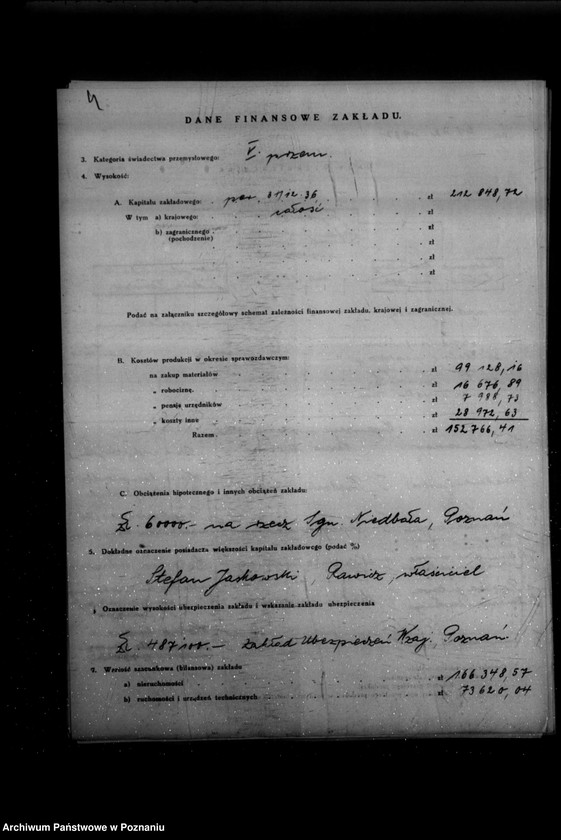 4
DANE FINANSOWE ZAKŁADU.
3. Kategoria świadectwa przemysłowego: V. przem.
4. Wysokość:
A. Kapitału zakładowego: per. 31/12.36 zł 212 848,72
W tym a) krajowego: całość zł
b) zagranicznego zł
(pochodzenie)
zł
zł
Podać na załączniku szczegółowy schemat zależności finansowej zakładu, krajowej i zagranicznej.
B. Kosztów produkcji w okresie sprawozdawczym:
na zakup materiałów zł 99 128,16
„ robociznę zł 16 676,89
„ pensje urzędników zł 7 988,73
„ koszty inne zł 28 972,63
Razem zł 152 766,41
C. Obciążenia hipotecznego i innych obciążeń zakładu:
Zł. 60000.- na rzecz Ign. Niedbała, Poznań
5. Dokładne oznaczenie posiadacza większości kapitału zakładowego (podać %)
Stefan Jaskowski, Rawicz, właściciel
Oznaczenie wysokości ubezpieczenia zakładu i wskazanie zakładu ubezpieczenia
Zł. 487100.- Zakład Ubezpieczeń Wzaj. Poznań.
Wartość szacunkowa (bilansowa) zakładu
a) nieruchomości zł 166 348,57
b) ruchomości i urządzeń technicznych zł 73620,04
Archiwum Państwowe w Poznaniu